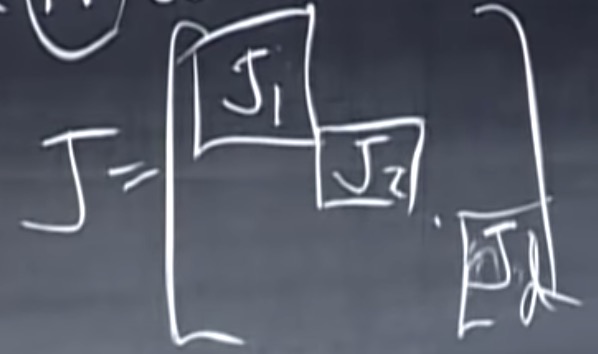 J = [ J₁
J₂
. J_d ]